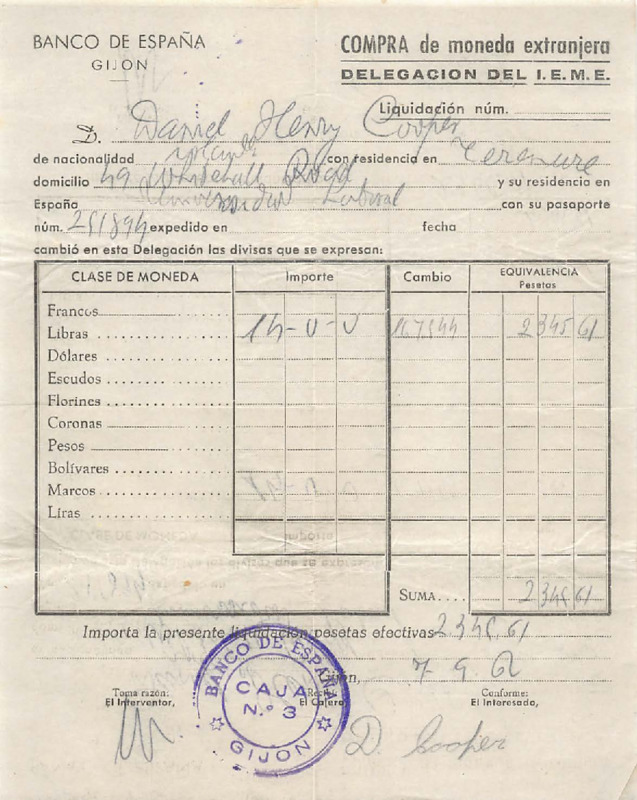 BANCO DE ESPAÑA
GIJON
COMPRA de moneda extranjera
DELEGACION DEL I.E.M.E.
Liquidación núm.
D. Daniel Henry Cooper
de nacionalidad con residencia en Terenure
domicilio 49 Whitehall Road y su residencia en
España Universidad Laboral con su pasaporte
núm. expedido en fecha
cambió en esta Delegación las divisas que se expresan:
CLASE DE MONEDA Importe Cambio EQUIVALENCIA
Pesetas
Francos
Libras 14-0-0 2345 61
Dólares
Escudos
Florines
Coronas
Pesos
Bolívares
Marcos
Liras
SUMA.... 2345 61
Importa la presente liquidación pesetas efectivas 2345,61
Gijón, 7 9 62
Toma razón: Conforme:
El Interventor, El Cajero, El Interesado,
D. Cooper
BANCO DE ESPAÑA
CAJA
N.º 3
GIJON